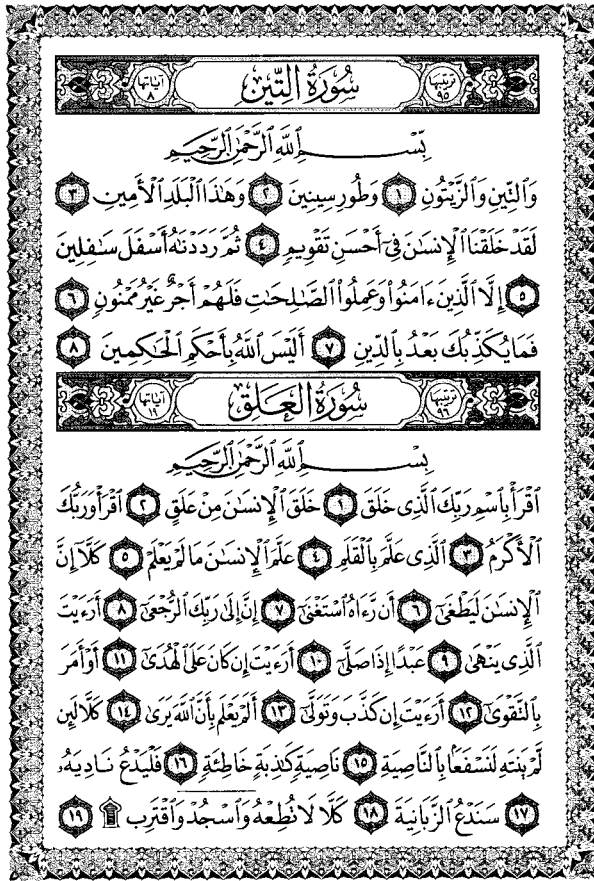 ترتيبها ٩٥ سُورَةُ التِّينِ آياتها ٨
بِّسْمِ ٱللَّهِ ٱلرَّحْمَٰنِ ٱلرَّحِيمِ
وَٱلتِّينِ وَٱلزَّيْتُونِ ١ وَطُورِ سِينِينَ ٢ وَهَٰذَا ٱلْبَلَدِ ٱلْأَمِينِ ٣
لَقَدْ خَلَقْنَا ٱلْإِنسَٰنَ فِىٓ أَحْسَنِ تَقْوِيمٍ ٤ ثُمَّ رَدَدْنَٰهُ أَسْفَلَ سَٰفِلِينَ
٥ إِلَّا ٱلَّذِينَ ءَامَنُوا۟ وَعَمِلُوا۟ ٱلصَّٰلِحَٰتِ فَلَهُمْ أَجْرٌ غَيْرُ مَمْنُونٍ ٦
فَمَا يُكَذِّبُكَ بَعْدُ بِٱلدِّينِ ٧ أَلَيْسَ ٱللَّهُ بِأَحْكَمِ ٱلْحَٰكِمِينَ ٨
ترتيبها ٩٦ سُورَةُ الْعَلَقِ آياتها ١٩
بِسْمِ ٱللَّهِ ٱلرَّحْمَٰنِ ٱلرَّحِيمِ
ٱقْرَأْ بِٱسْمِ رَبِّكَ ٱلَّذِى خَلَقَ ١ خَلَقَ ٱلْإِنسَٰنَ مِنْ عَلَقٍ ٢ ٱقْرَأْ وَرَبُّكَ
ٱلْأَكْرَمُ ٣ ٱلَّذِى عَلَّمَ بِٱلْقَلَمِ ٤ عَلَّمَ ٱلْإِنسَٰنَ مَا لَمْ يَعْلَمْ ٥ كَلَّآ إِنَّ
ٱلْإِنسَٰنَ لَيَطْغَىٰٓ ٦ أَن رَّءَاهُ ٱسْتَغْنَىٰٓ ٧ إِنَّ إِلَىٰ رَبِّكَ ٱلرُّجْعَىٰٓ ٨ أَرَءَيْتَ
ٱلَّذِى يَنْهَىٰ ٩ عَبْدًا إِذَا صَلَّىٰٓ ١٠ أَرَءَيْتَ إِن كَانَ عَلَى ٱلْهُدَىٰٓ ١١ أَوْ أَمَرَ
بِٱلتَّقْوَىٰٓ ١٢ أَرَءَيْتَ إِن كَذَّبَ وَتَوَلَّىٰٓ ١٣ أَلَمْ يَعْلَم بِأَنَّ ٱللَّهَ يَرَىٰ ١٤ كَلَّا لَئِن
لَّمْ يَنتَهِ لَنَسْفَعًۢا بِٱلنَّاصِيَةِ ١٥ نَاصِيَةٍ كَٰذِبَةٍ خَاطِئَةٍ ١٦ فَلْيَدْعُ نَادِيَهُۥ
١٧ سَنَدْعُ ٱلزَّبَانِيَةَ ١٨ كَلَّا لَا تُطِعْهُ وَٱسْجُدْ وَٱقْتَرِب ۩ ١٩